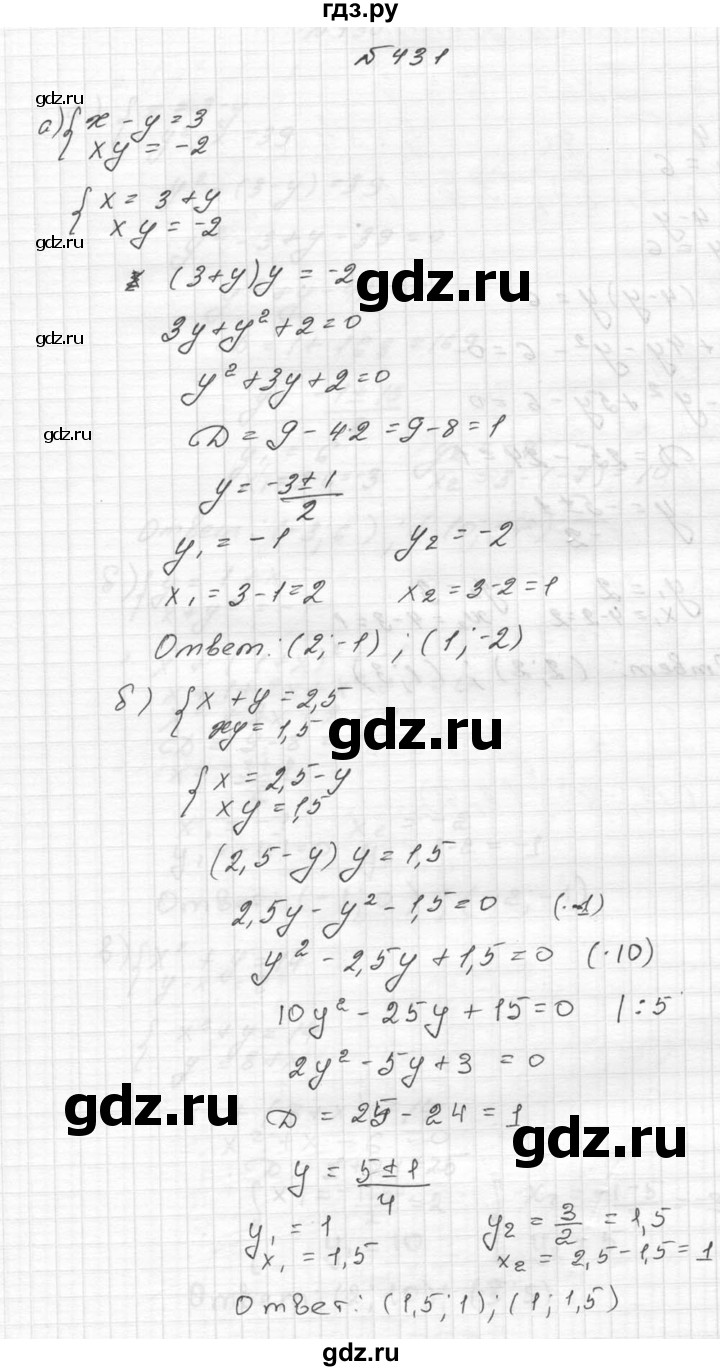 гдз.ру
№431
gdz.ru
а) { x - y = 3
xy = -2
{ x = 3 + y
gdz.ru
xy = -2
(3+y)y = -2
gdz.ru
3y + y² + 2 = 0
gdz.ru
y² + 3y + 2 = 0
gdz.ru
D = 9 - 4·2 = 9 - 8 = 1
y = (-3 ± 1)/2
y₁ = -1 y₂ = -2
x₁ = 3 - 1 = 2 x₂ = 3 - 2 = 1
Ответ: (2; -1); (1; -2)
б) { x + y = 2,5
xy = 1,5
gdz.ru
{ x = 2,5 - y
xy = 1,5
(2,5 - y) y = 1,5
2,5y - y² - 1,5 = 0 (·-1)
y² - 2,5y + 1,5 = 0 (·10)
10y² - 25y + 15 = 0 | : 5
2y² - 5y + 3 = 0
gdz.ru
D = 25 - 24 = 1
gdz.ru
y = (5 ± 1)/4
y₁ = 1 y₂ = 3/2 = 1,5
x₁ = 1,5 x₂ = 2,5 - 1,5 = 1
Ответ: (1,5; 1); (1; 1,5)
гдз.ру